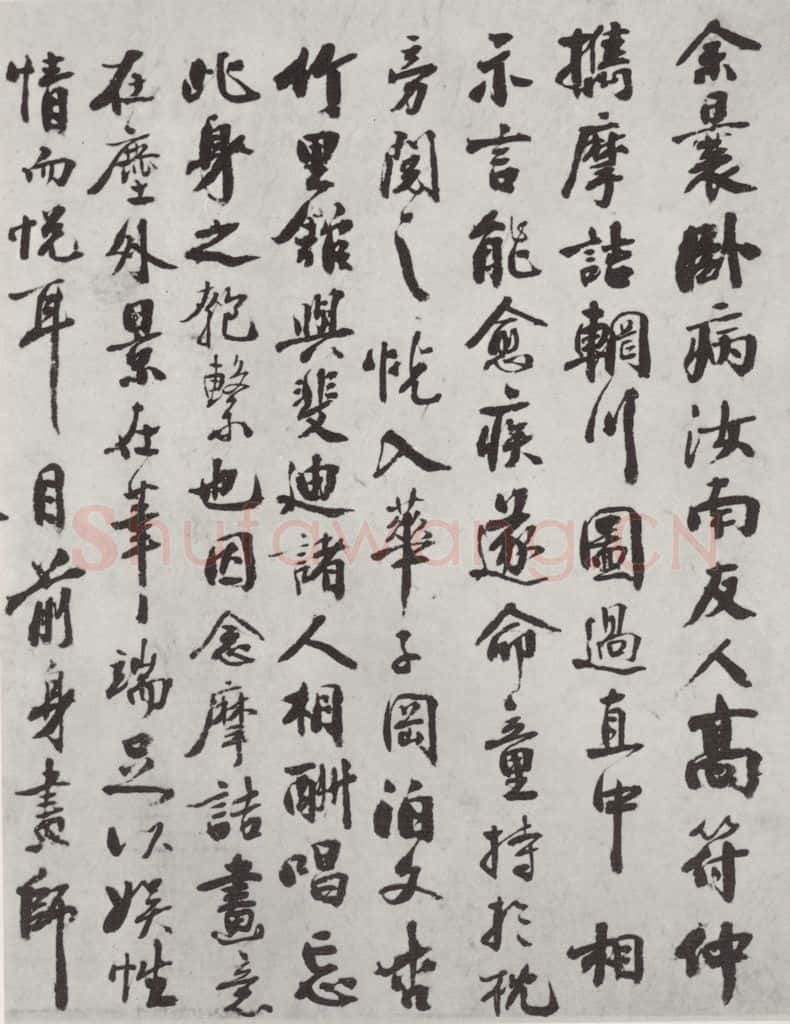 余曩臥病汝南友人高符仲
攜摩詰輞川圖過直中相
示言能愈疾遂命童持於枕
旁閱之恍入華子岡泊文杏
竹里館與斐迪諸人相酬唱忘
此身之匏繫也因念摩詰畫意
在塵外景在筆端足以娛性
情而悅耳目前身畫師
Shufawang.CN